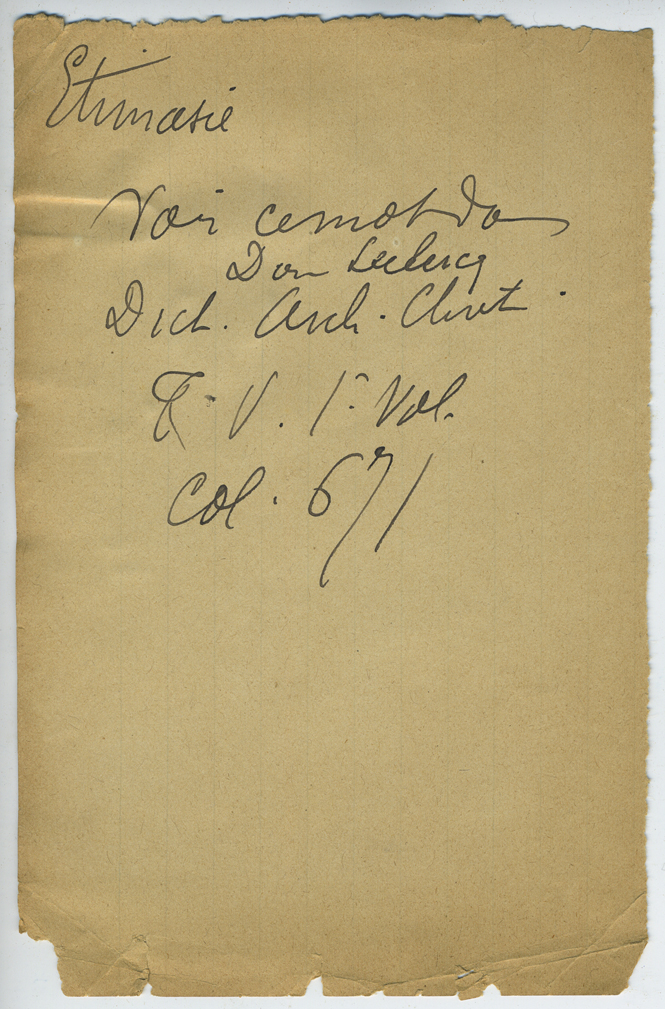 Etimasie
Voir ce mot dans
Dom Leclercq
Dict. Arch. Chret.
T. V. 1e Vol.
Col. 671